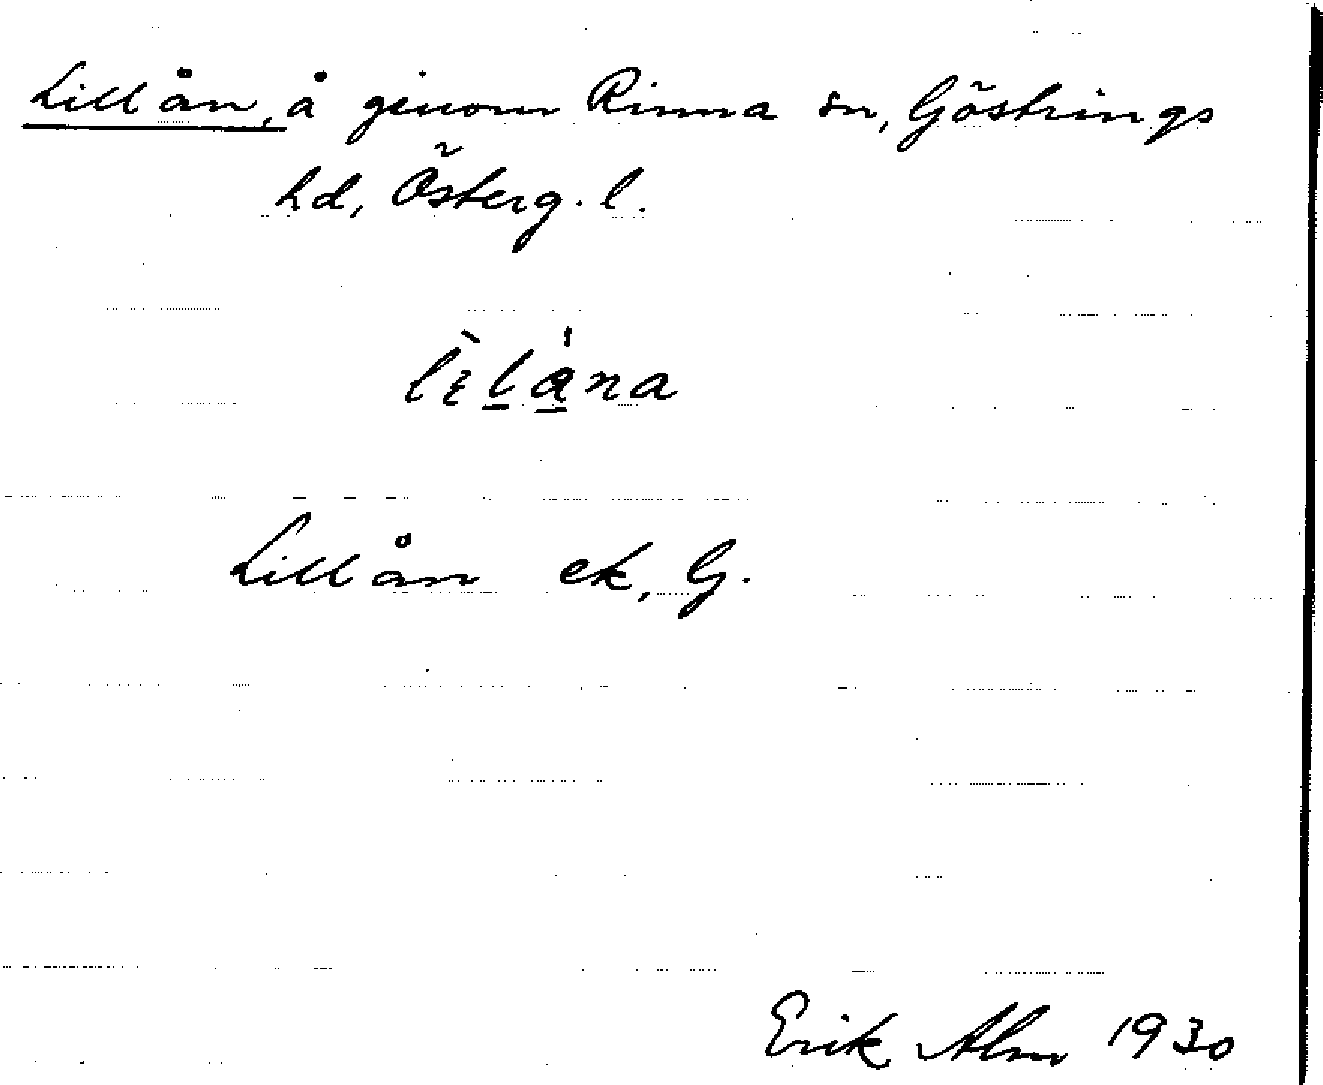 Lillån, å genom Rinna sn, Göstrings
hd, Österg. l.
Lillån ek, G.
Erik Alm 1930